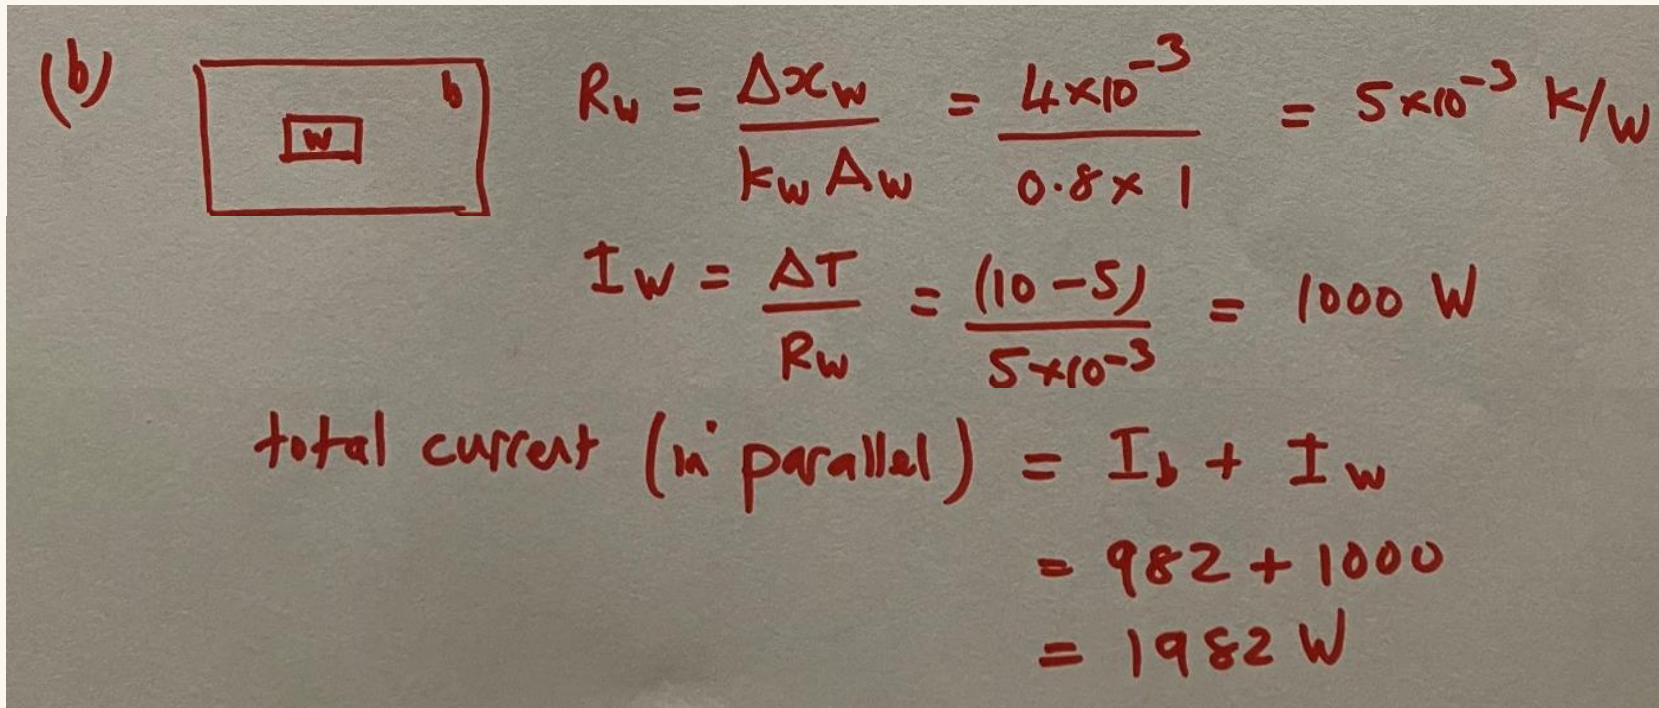 (b)
b
W
R_w = Δx_w / (k_w A_w) = 4×10^-3 / (0.8 × 1) = 5×10^-3 K/W
I_w = ΔT / R_w = (10-5) / (5×10^-3) = 1000 W
total current (in parallel) = I_b + I_w
= 982 + 1000
= 1982 W